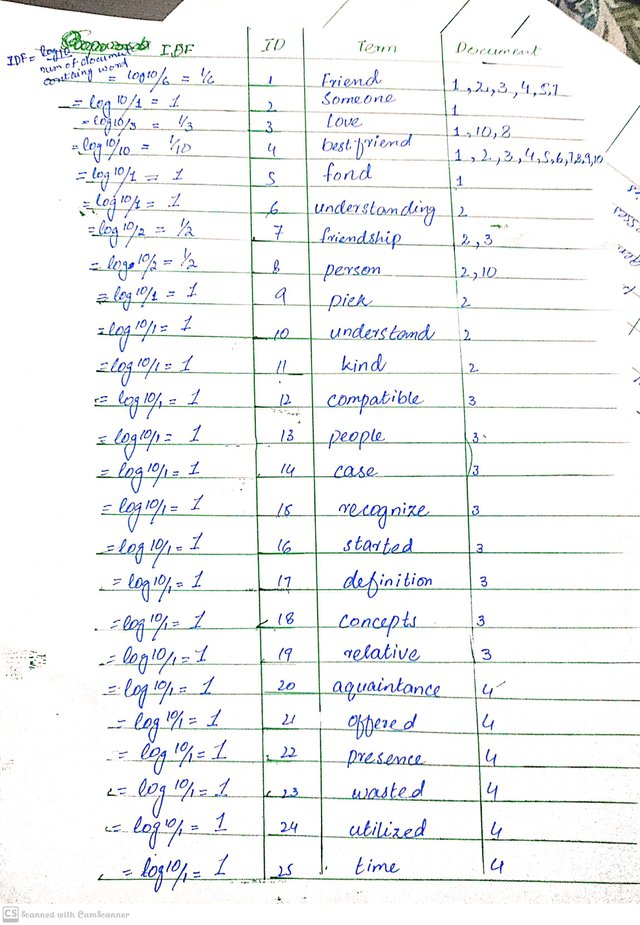 IDF ID Term Document
IDF = log10
num of document
containing word
= log10/6 = 1/6 1 Friend 1,2,3,4,5,7
= log10/1 = 1 2 Someone 1
= log10/3 = 1/3 3 Love 1,10,8
= log10/10 = 1/10 4 best-friend 1,2,3,4,5,6,7,8,9,10
= log10/1 = 1 5 fond 1
= log10/1 = 1 6 understanding 2
= log10/2 = 1/2 7 friendship 2,3
= log10/2 = 1/2 8 person 2,10
= log10/1 = 1 9 pick 2
= log10/1 = 1 10 understand 2
= log10/1 = 1 11 kind 2
= log10/1 = 1 12 compatible 3
= log10/1 = 1 13 people 3
= log10/1 = 1 14 case 3
= log10/1 = 1 15 recognize 3
= log10/1 = 1 16 started 3
= log10/1 = 1 17 definition 3
= log10/1 = 1 18 concepts 3
= log10/1 = 1 19 relative 3
= log10/1 = 1 20 aquaintance 4
= log10/1 = 1 21 offered 4
= log10/1 = 1 22 presence 4
= log10/1 = 1 23 wasted 4
= log10/1 = 1 24 utilized 4
= log10/1 = 1 25 time 4
CS Scanned with CamScanner